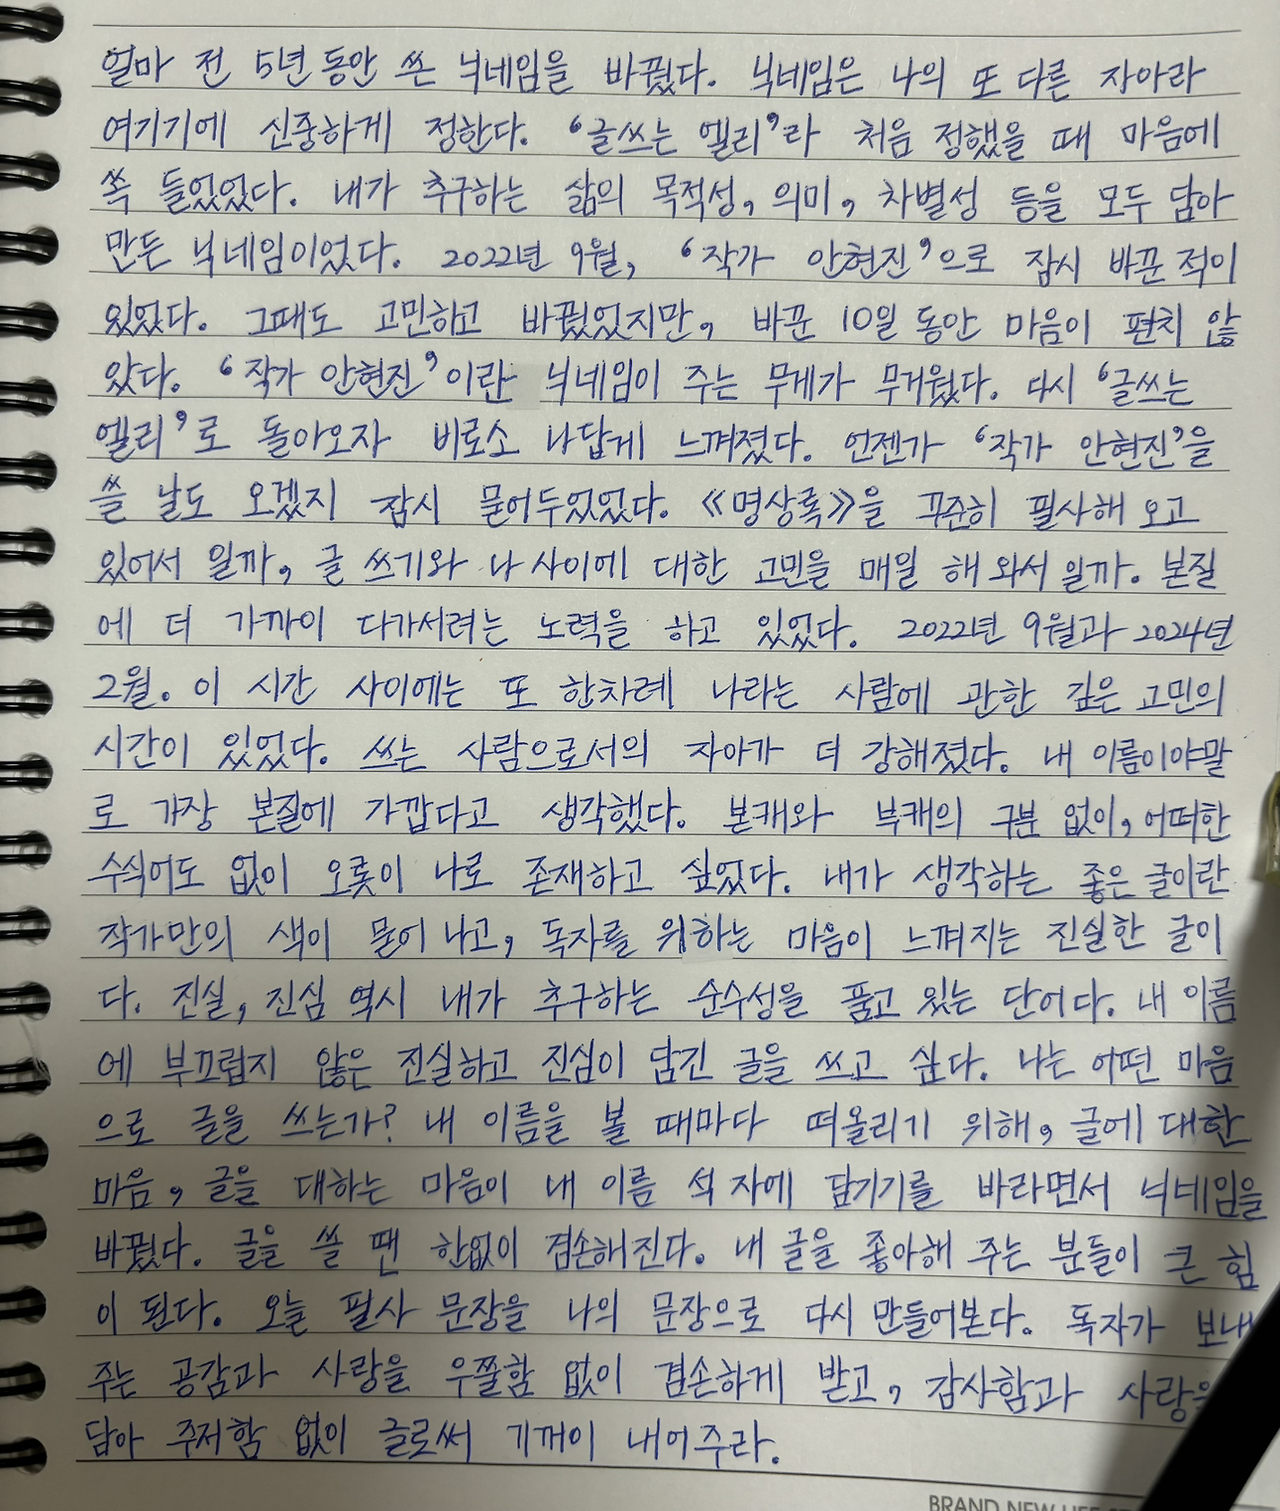 얼마 전 5년 동안 쓴 닉네임을 바꿨다. 닉네임은 나의 또 다른 자아라
여기기에 신중하게 정한다. ‘글쓰는 엘리’라 처음 정했을 때 마음에
쏙 들었었다. 내가 추구하는 삶의 목적성, 의미, 차별성 등을 모두 담아
만든 닉네임이었다. 2022년 9월, ‘작가 안현진’으로 잠시 바꾼 적이
있었다. 그때도 고민하고 바꿨었지만, 바꾼 10일 동안 마음이 편치 않
았다. ‘작가 안현진’이란 닉네임이 주는 무게가 무거웠다. 다시 ‘글쓰는
엘리’로 돌아오자 비로소 나답게 느껴졌다. 언젠가 ‘작가 안현진’을
쓸 날도 오겠지 잠시 묻어두었었다. 《명상록》을 꾸준히 필사해 오고
있어서 일까, 글 쓰기와 나 사이에 대한 고민을 매일 해 와서 일까. 본질
에 더 가까이 다가서려는 노력을 하고 있었다. 2022년 9월과 2024년
2월. 이 시간 사이에는 또 한차례 나라는 사람에 관한 깊은 고민의
시간이 있었다. 쓰는 사람으로서의 자아가 더 강해졌다. 내 이름이야말
로 가장 본질에 가깝다고 생각했다. 본캐와 부캐의 구분 없이, 어떠한
수식어도 없이 오롯이 나로 존재하고 싶었다. 내가 생각하는 좋은 글이란
작가만의 색이 묻어 나고, 독자를 위하는 마음이 느껴지는 진실한 글이
다. 진실, 진심 역시 내가 추구하는 순수성을 품고 있는 단어다. 내 이름
에 부끄럽지 않은 진실하고 진심이 담긴 글을 쓰고 싶다. 나는 어떤 마음
으로 글을 쓰는가? 내 이름을 볼 때마다 떠올리기 위해, 글에 대한
마음, 글을 대하는 마음이 내 이름 석 자에 담기기를 바라면서 닉네임을
바꿨다. 글을 쓸 땐 한없이 겸손해진다. 내 글을 좋아해 주는 분들이 큰 힘
이 된다. 오늘 필사 문장을 나의 문장으로 다시 만들어본다. 독자가 보내
주는 공감과 사랑을 우쭐함 없이 겸손하게 받고, 감사함과 사랑을
담아 주저함 없이 글로써 기꺼이 내어주라.
BRAND NEW